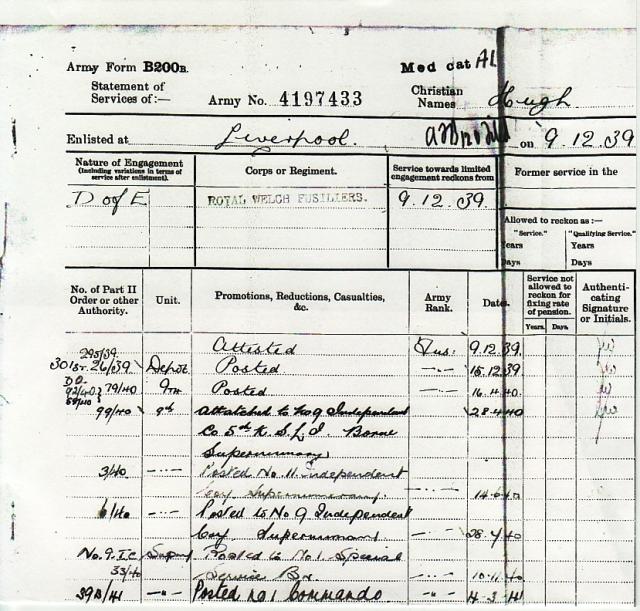 Army Form B200B.
Med cat A1
Statement of
Services of:—
Army No. 4197433
Christian
Names Hugh.
Enlisted at Liverpool. on 9.12.39
Nature of Engagement
(including variations in terms of
service after enlistment).
Corps or Regiment.
Service towards limited
engagement reckons from
Former service in the
D of E
ROYAL WELCH FUSILIERS.
9.12.39
Allowed to reckon as:—
"Service." "Qualifying Service."
Years Years
Days Days
No. of Part II
Order or other
Authority.
Unit.
Promotions, Reductions, Casualties,
&c.
Army
Rank.
Dates.
Service not
allowed to
reckon for
fixing rate
of pension.
Years. Days
Authenti-
cating
Signature
or Initials.
295/39 Attested Fus: 9.12.39.
26/39 Depot Posted —·— 15.12.39
79/40 9th Posted —·— 16.4.40
99/40 9th Attatched to No 9 Independent 28.4.40
Co 5th K.S.L.I.
Supernumerary
3/40 —··— Posted No. 11 Independent
Coy Supernumerary. —·— 14.6.40
6/40 —··— Posted to No 9 Independent
Coy Supernumerary —·— 28.7.40
No. 9. I.C Posted to No 1. Special
33/40 Service Bn —··— 10.11.40
398/41 —"— Posted No 1 Commando. —"— 4.3.41